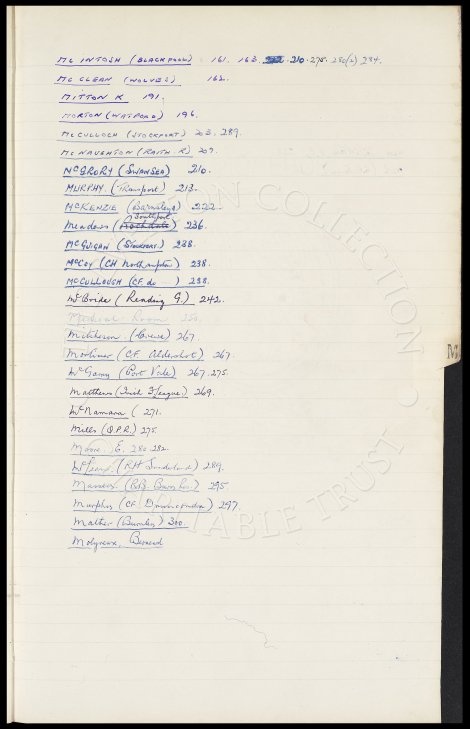 MC INTOSH (BLACKPOOL) 161. 163. 210. 275. 280(2) 284.
MC CLEAN (WOLVES) 162.
MITTON K 191.
MORTON (WATFORD) 196.
MCCULLOCH (STOCKPORT) 203. 289.
MC NAUGHTON (RAITH R) 207.
MCGRORY (SWANSEA) 210.
MURPHY (Transport) 213.
MCKENZIE (Barnsley) 222
Southport
Meadows (Rochdale) 236.
MCGUIGAN (Stockport) 238.
MCCOY (CH Northampton) 238.
MCCULLOUGH (CF. do ) 238.
McBride (Reading G.) 242.
Medical Room 250.
Mitcheson (Crewe) 267
Mortimer (CF. Aldershot) 267.
McGarry (Port Vale) 267. 275.
Matthews (Irish League) 269.
McNamara ( 271.
Mills (Q.P.R.) 275.
Moore E. 280. 282.
(RH Sunderland) 289.
295
Murphy (CF. 297.
Mather (Burnley) 300.
Molyneux, Bernard
M
COLLECTION
TABLE TRUST